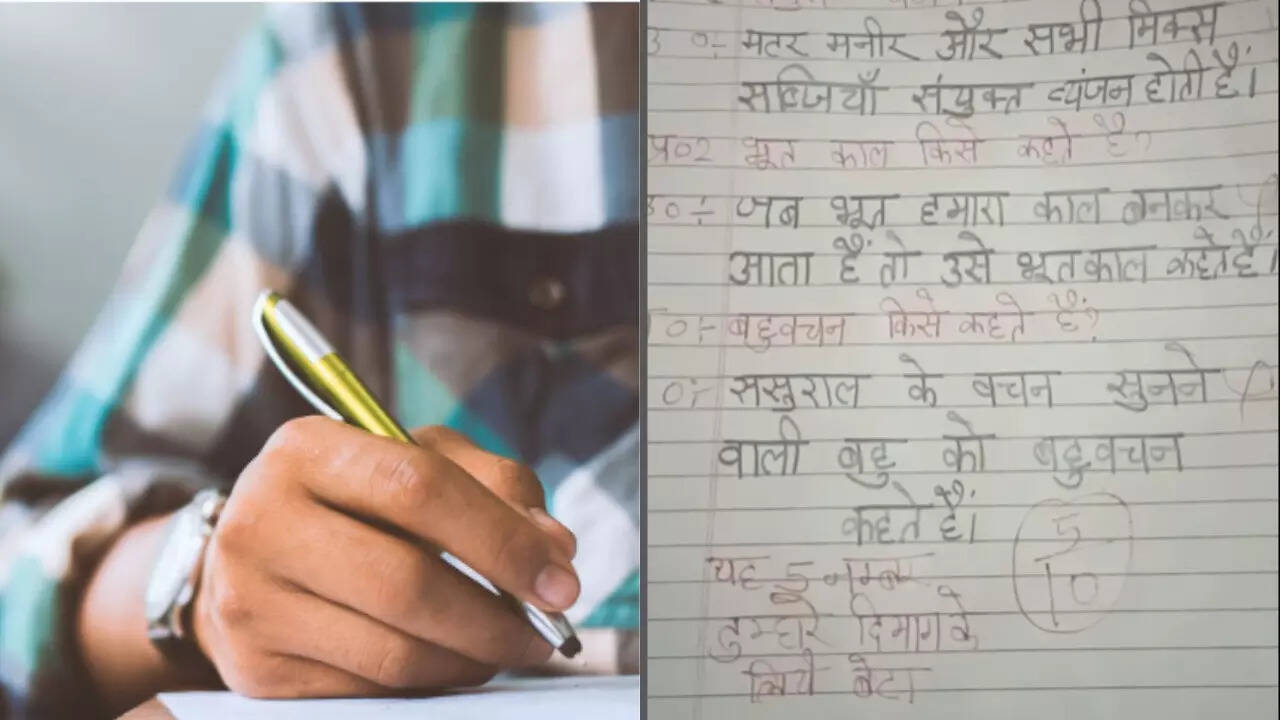 उ०:- मटर मनीर और सभी मिक्स
सब्जियाँ संयुक्त व्यंजन होती हैं।
प्र०2 भूत काल किसे कहते हैं?
उ०:- जब भूत हमारा काल बनकर
आता हैं तो उसे भूतकाल कहतेहैं।
०:- बहुवचन किसे कहते हैं?
०:- ससुराल के वचन सुनने
वाली बहु को बहुवचन
कहते हैं।
5
10
यह 5 नम्बर
तुम्हारे दिमाग के
लिये बेटा